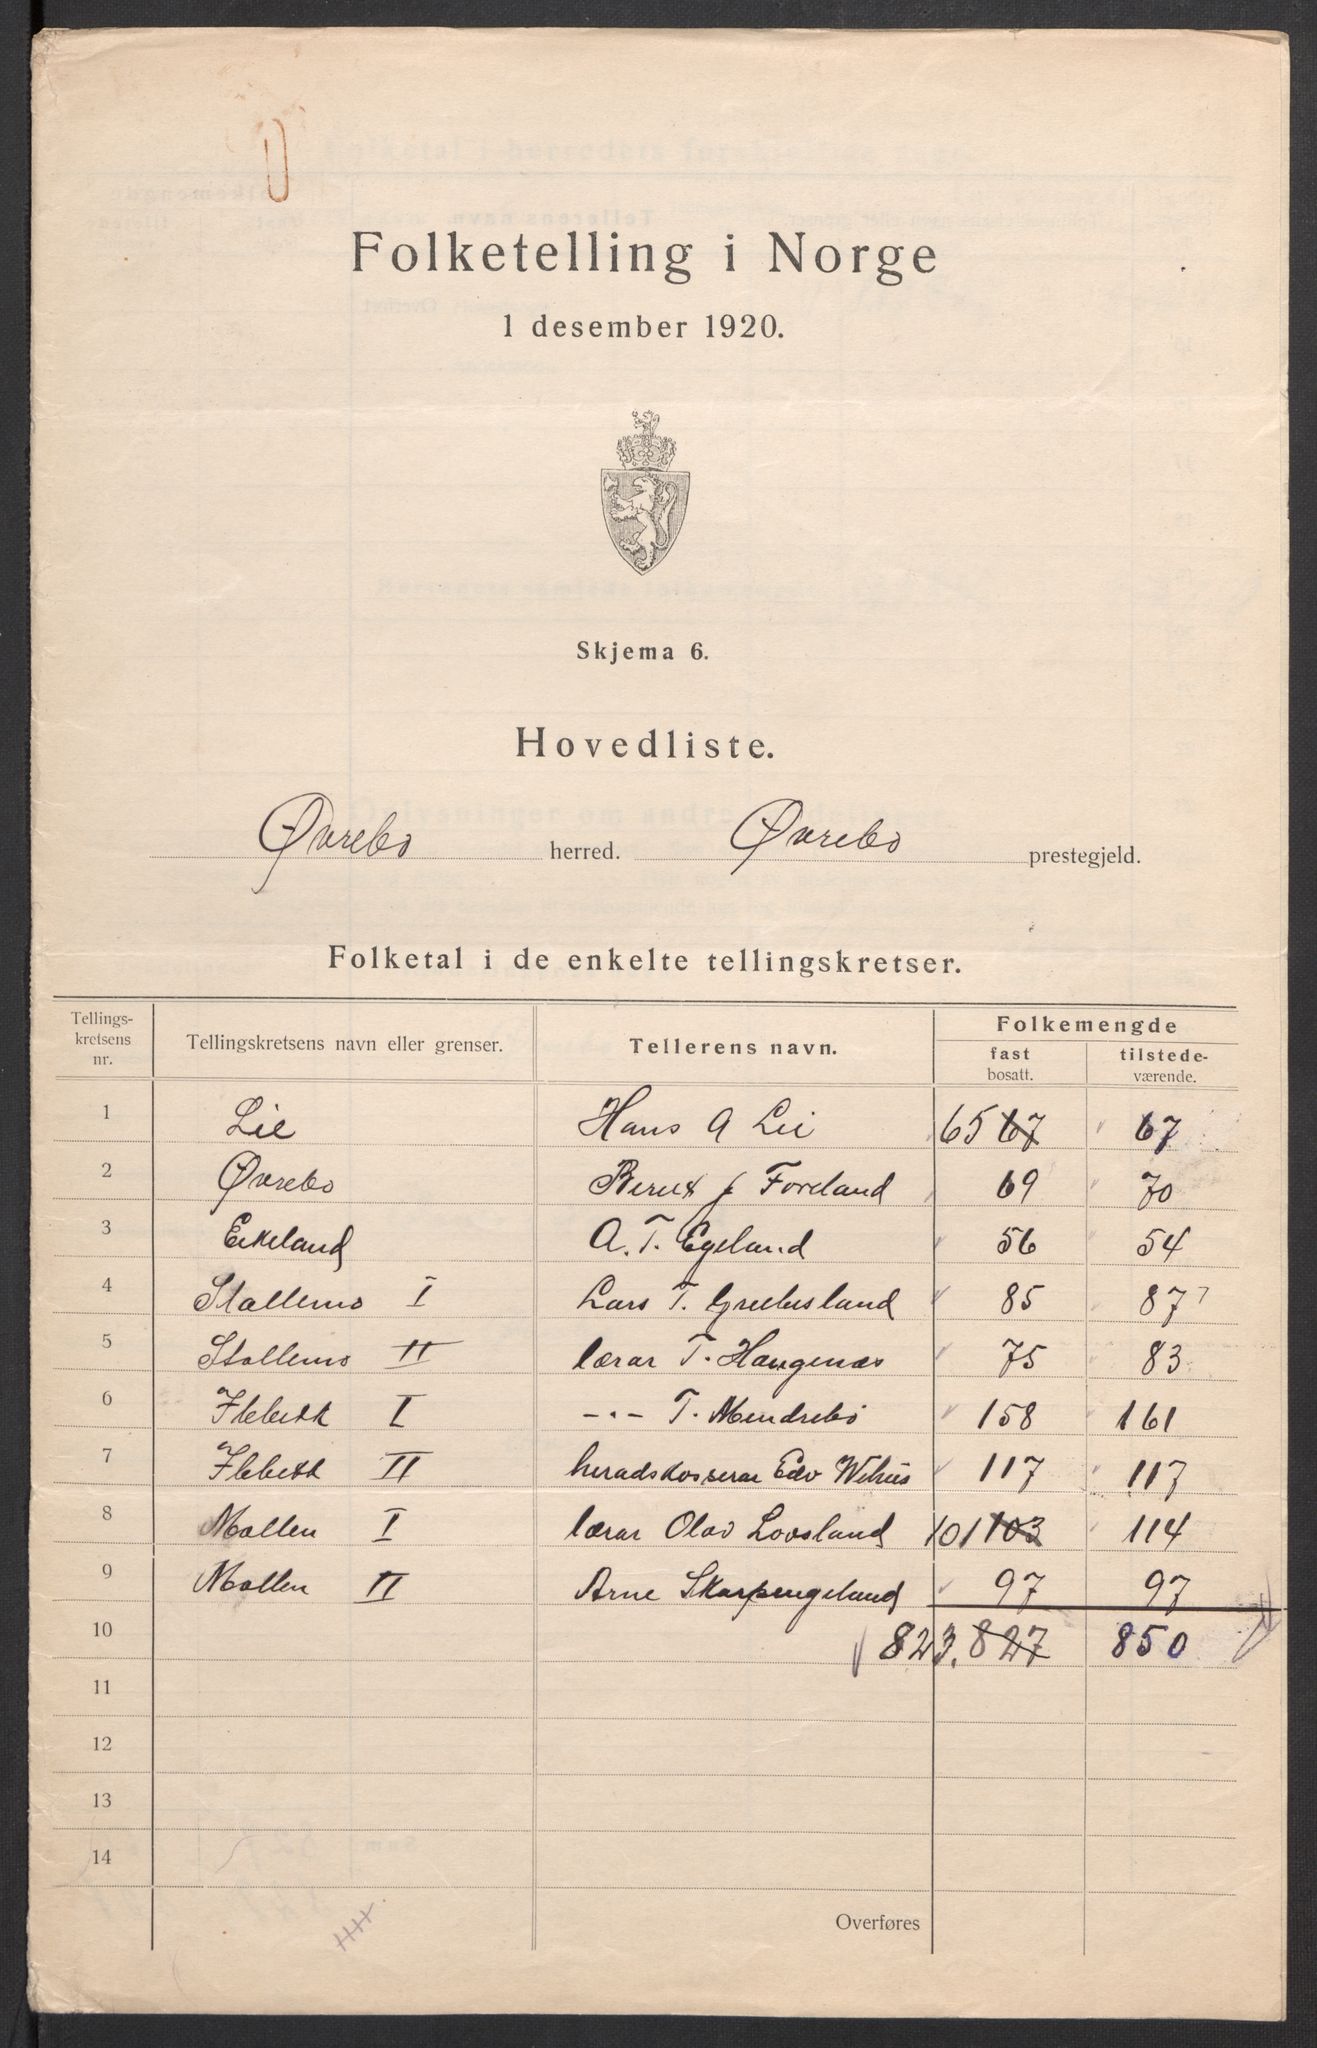 Folketelling i Norge
1 desember 1920.
Skjema 6.
Hovedliste.
Øvrebo herred. Øvrebo prestegjeld.
Folketal i de enkelte tellingskretser.
Tellings-kretsens nr. Tellingskretsens navn eller grenser. Tellerens navn. Folkemengde
fast bosatt. tilstede-værende.
1 Lie Hans A Lie 65 67 67
2 Øvrebo Berut J Foreland 69 70
3 Eikeland A. T. Egeland 56 54
4 Stallemo I Lars T. Greibesland 85 87
5 Stallemo II lærar T. Haugenæs 75 83
6 Hebekk I -"- T. Mendrebö 158 161
7 Hebekk II heradskasserar Edv Wehus 117 117
8 Mollen I lærar Olav Lovsland 101 103 114
9 Mollen II Arne Skarpengeland 97 97
10 823. 827 850
11
12
13
14
Overføres